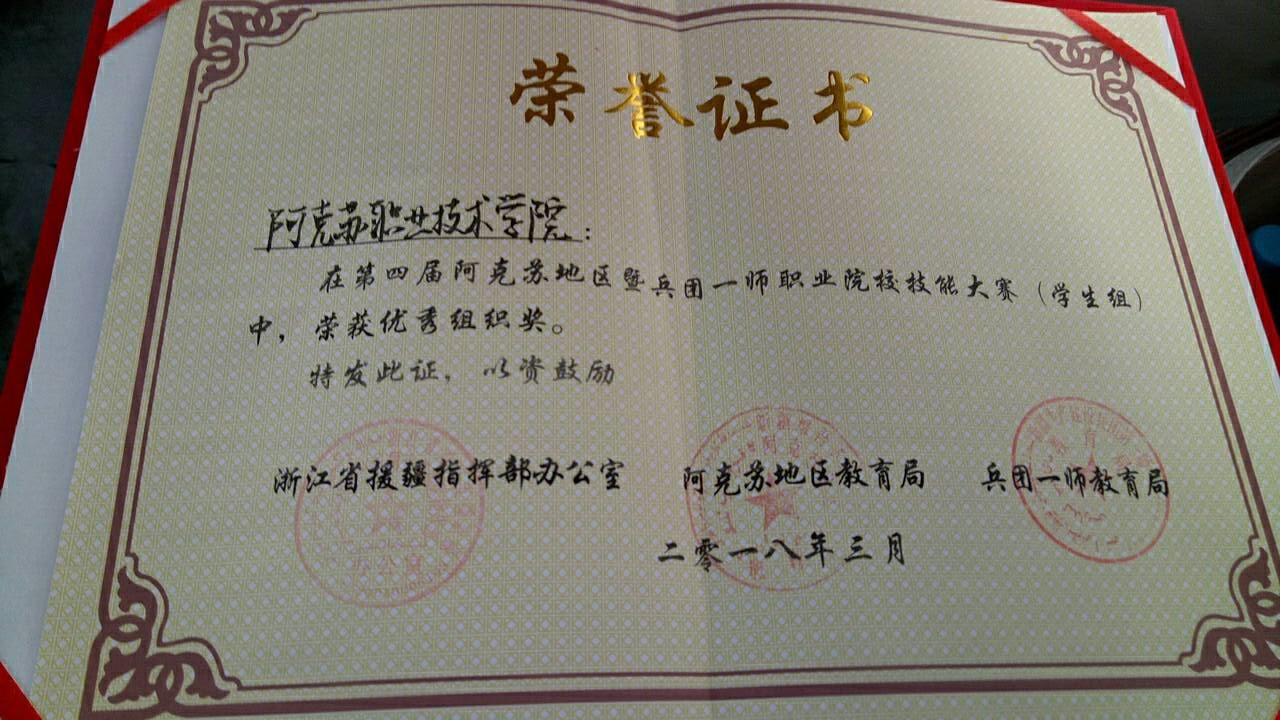 荣誉证书
阿克苏职业技术学院：
在第四届阿克苏地区暨兵团一师职业院校技能大赛（学生组）
中，荣获优秀组织奖。
特发此证，以资鼓励
浙江省援疆指挥部办公室 阿克苏地区教育局 兵团一师教育局
二零一八年三月